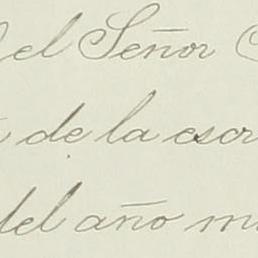 el Señor
de la escr
del año m